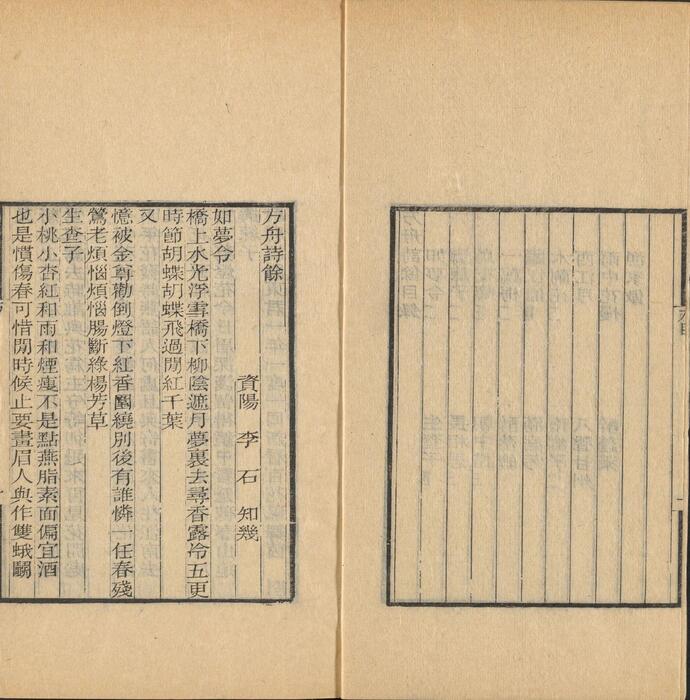 方舟詩餘
資陽 李 石 知幾
如夢令
橋上水光浮雪橋下柳陰遮月夢裏去尋香露冷五更
時節胡蝶胡蝶飛過閒紅千葉
又
憶被金尊勸倒燈下紅香圍繞別後有誰憐一任春殘
鶯老煩惱煩惱腸斷綠楊芳草
生查子
小桃小杏紅和雨和煙瘦不是點燕脂素面偏宜酒
也是慣傷春可惜閒時候止要畫眉人與作雙蛾鬭